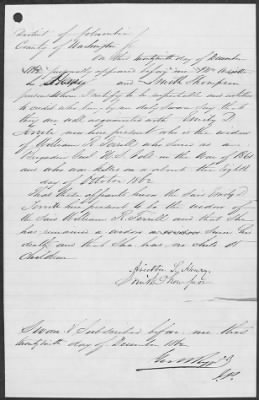 District of Columbia
County of Washington
On this day of December
1862 personally appeared before me
and Smith Thompson
persons whom I certify to be respectable and entitled
to credit who being by me duly sworn say that
they are well acquainted with Emily D
Terrill now here present who is the widow
of William R Terrill who served as a
Brigadier Genl U.S. Vols in the War of 1861
and who was killed on or about the eighth
day of October 1862
That these appeared
Terrill here present to be the widow of
the said William R. Terrill and that she
has remained a widow since his
death and that she has no child or
Children
Smith Thompson
Sworn & Subscribed before me this
day of December 1862
J.P.